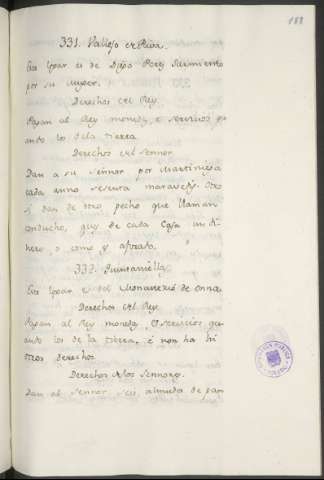 188
331. Vallejo et Riva.
Este logar es de Diago Perez Sarmiento
por su muger.
Derechos del Rey
Pagan al Rey moneda e servicios qu
ando los dela tierra
Derechos del Sennor
Dan a su Sennor por Martiniega
cada anno sesenta maravedis Otro
si dan de otro pecho que llaman
conducho, que de cada casa un di
nero, o como
332. Quintaniella
Este logar es del Monasterio de Onna,
Derechos del Rey
Pagan al Rey moneda, e servicios qu
ando los de la tierra, e non ha hi
otros derechos
Derechos delos Sennores
Dan al Sennor seis almudes de pan